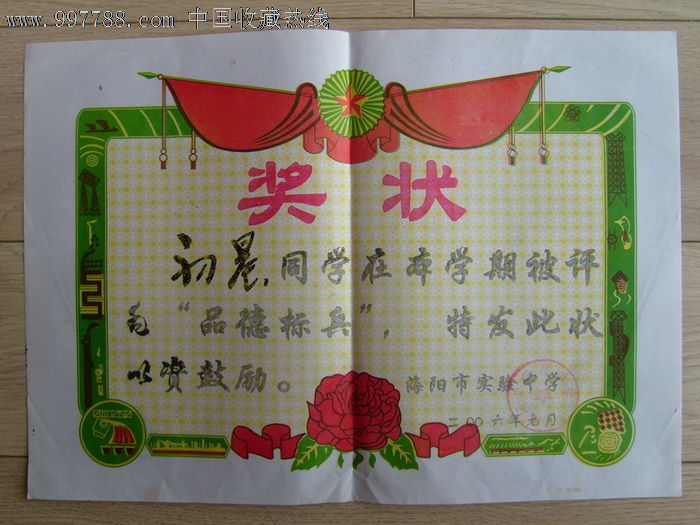 www.997788.com 中国收藏热线
奖 状
初晨同学在本学期被评
为“品德标兵”， 特发此状
以资鼓励。
海阳市实验中学
二00六年元月